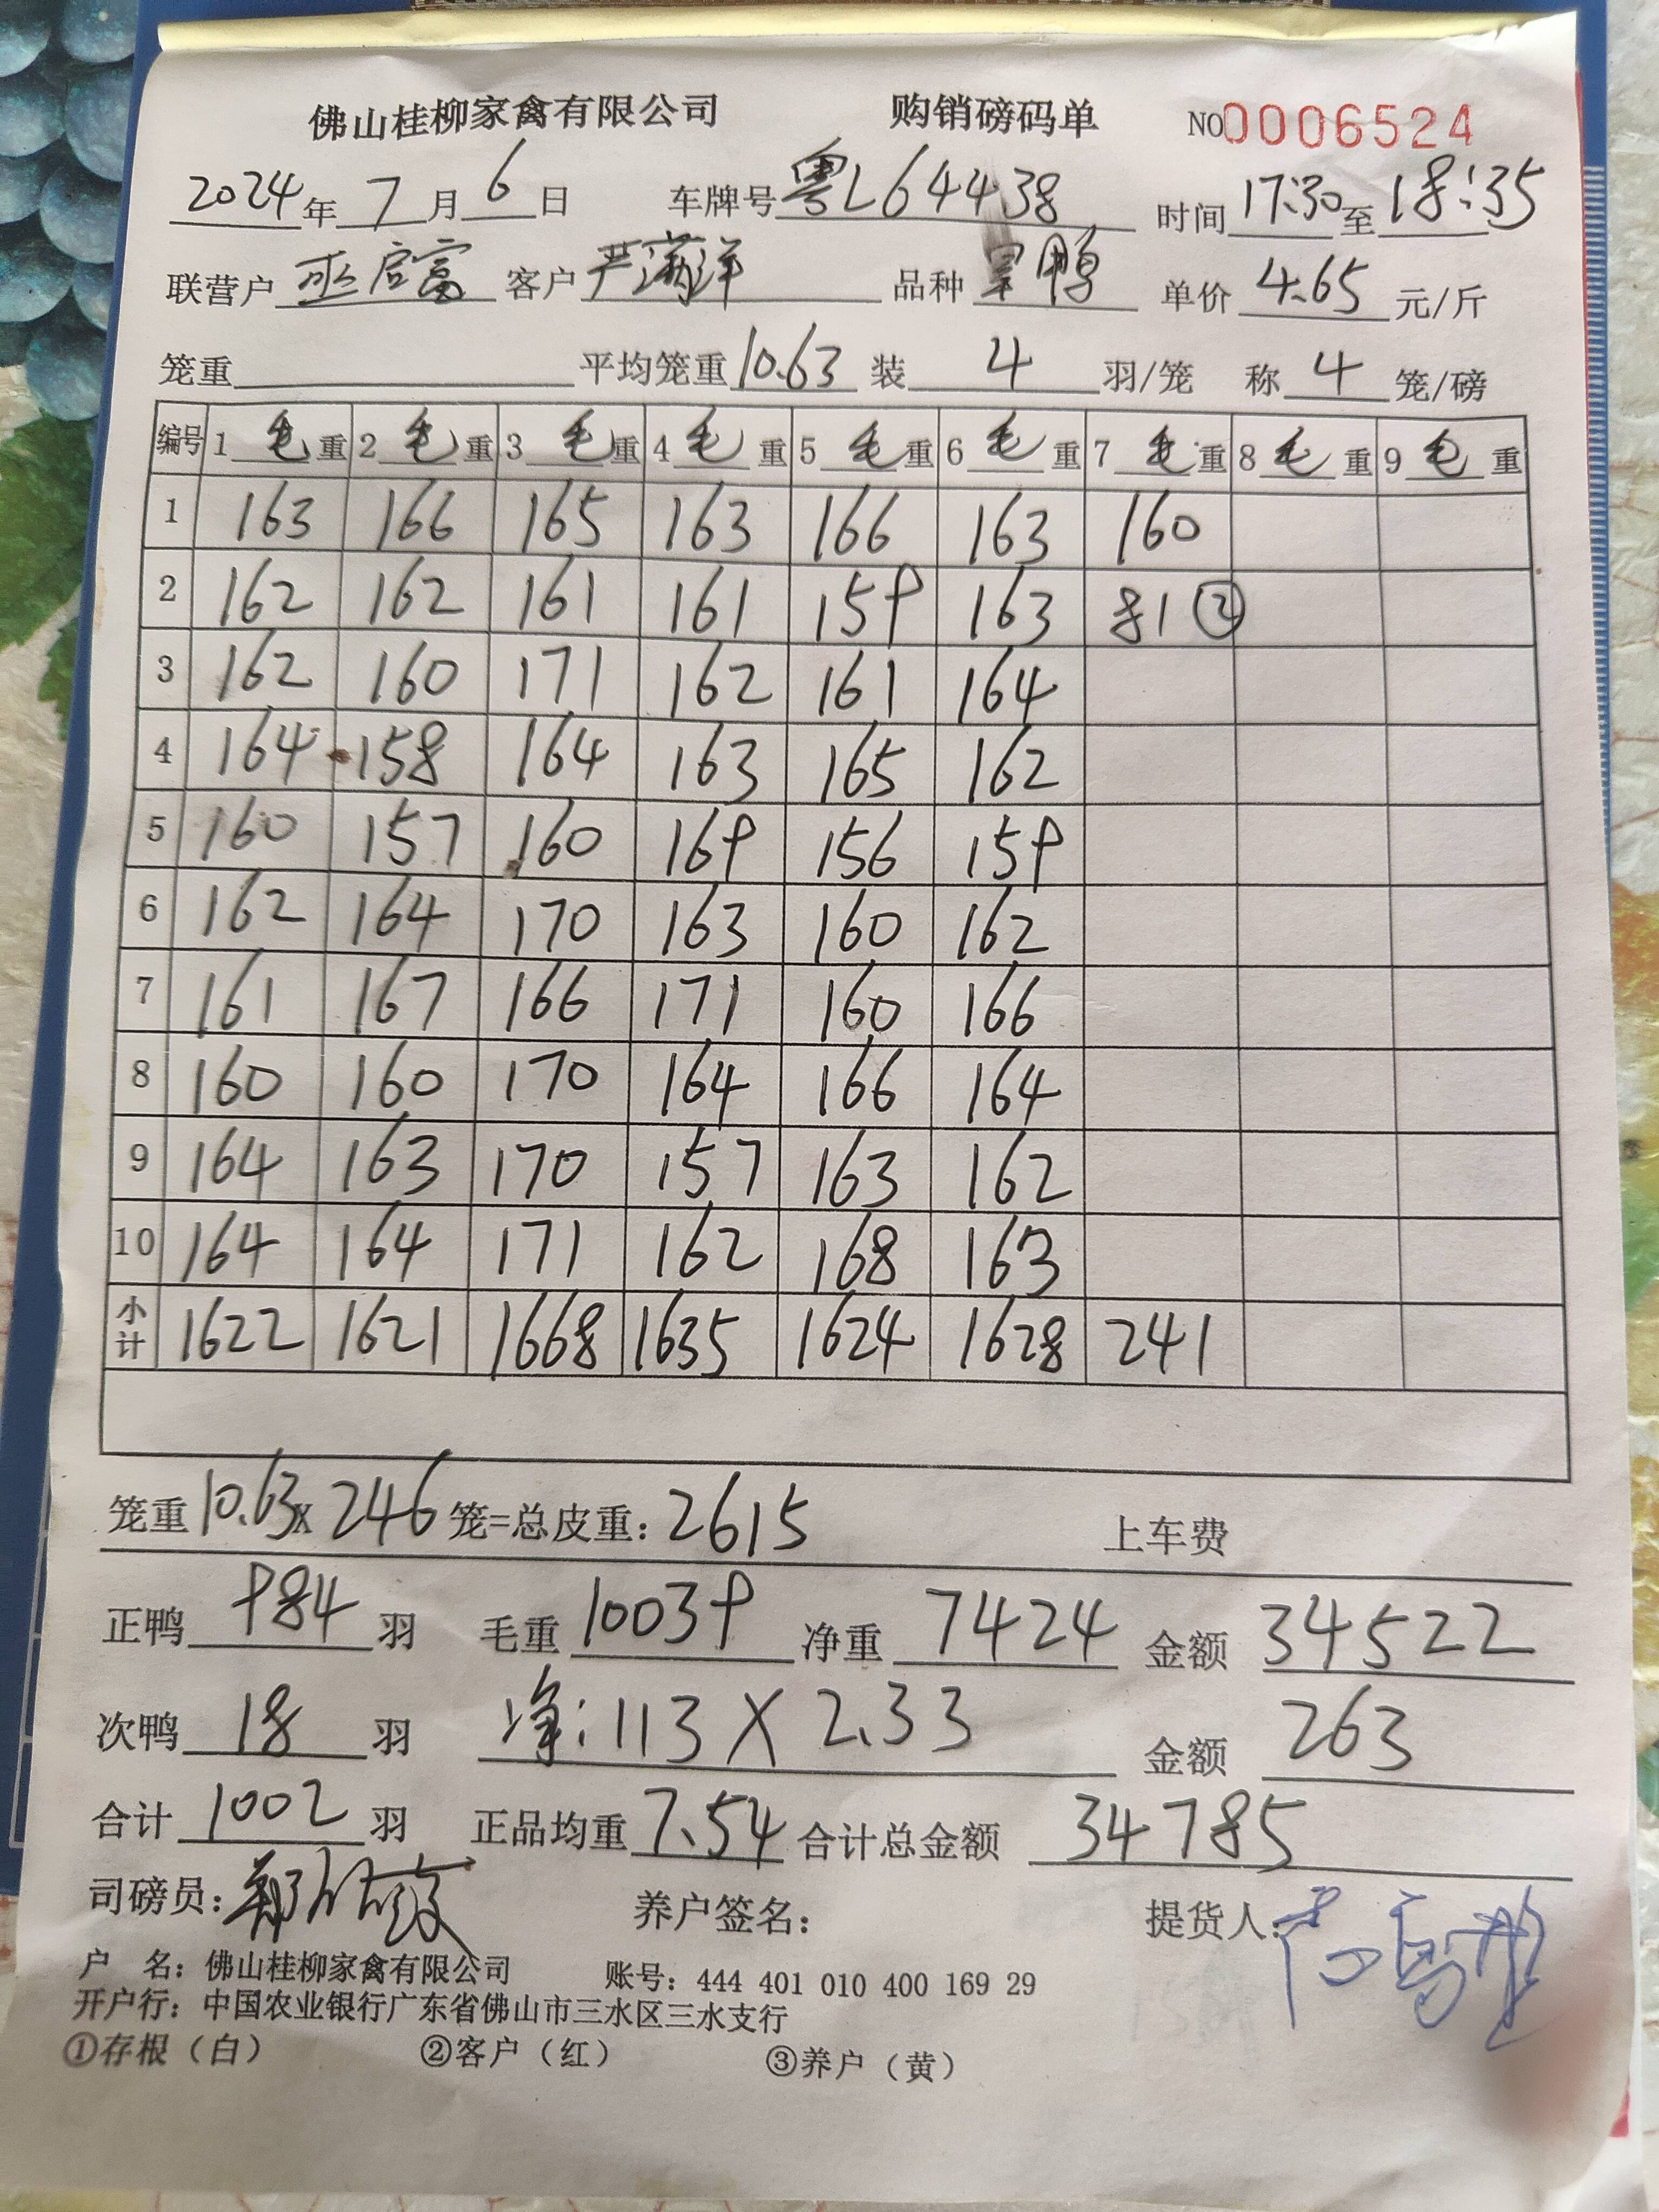 佛山桂柳家禽有限公司 购销磅码单 NO0006524
2024年7月6日 车牌号粤L64438 时间17:30至18:35
联营户巫启富 客户严满洋 品种旱鸭 单价4.65元/斤
笼重 平均笼重10.63 装4羽/笼 称4笼/磅
编号 1毛重 2毛重 3毛重 4毛重 5毛重 6毛重 7毛重 8毛重 9毛重
1 163 166 165 163 166 163 160
2 162 162 161 161 159 163 81②
3 162 160 171 162 161 164
4 164 158 164 163 165 162
5 160 157 160 169 156 159
6 162 164 170 163 160 162
7 161 167 166 171 160 166
8 160 160 170 164 166 164
9 164 163 170 157 163 162
10 164 164 171 162 168 163
小计 1622 1621 1668 1635 1624 1628 241
笼重10.63x246笼=总皮重:2615 上车费
正鸭984羽 毛重10039 净重7424 金额34522
次鸭18羽 净:113X2.33 金额263
合计1002羽 正品均重7.54 合计总金额34785
司磅员: 养户签名: 提货人:
户 名: 佛山桂柳家禽有限公司 账号: 444 401 010 400 169 29
开户行: 中国农业银行广东省佛山市三水区三水支行
①存根（白） ②客户（红） ③养户（黄）